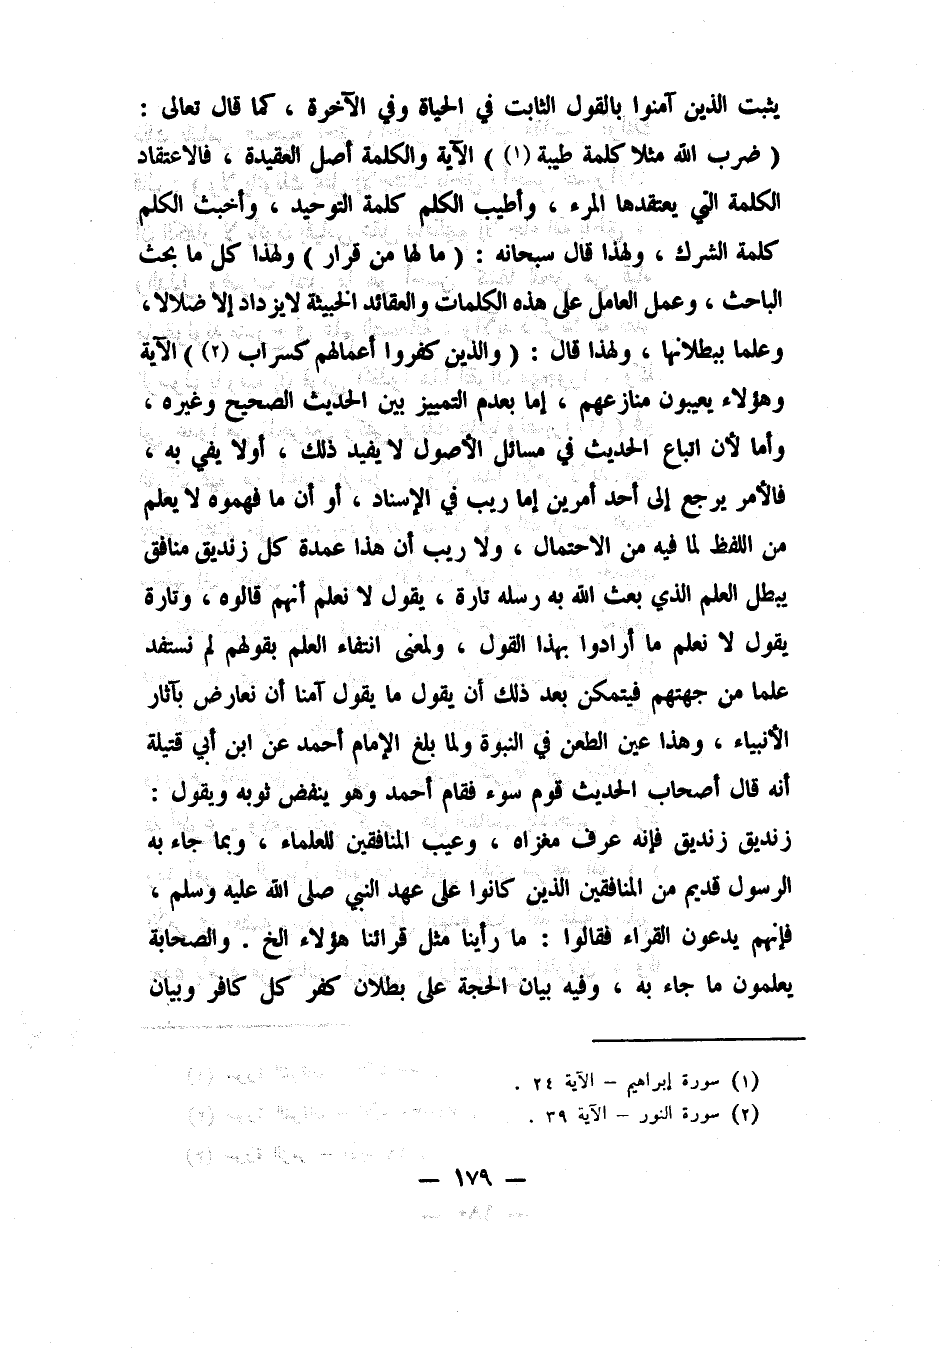 يثبت الذين آمنوا بالقول الثابت في الحياة وفي الآخرة ، كما قال تعالى :
( ضرب الله مثلا كلمة طيبة (١) ) الآية والكلمة أصل العقيدة ، فالاعتقاد
الكلمة التي يعتقدها المرء ، وأطيب الكلم كلمة التوحيد ، وأخبث الكلم
كلمة الشرك ، ولهذا قال سبحانه : ( ما لها من قرار ) ولهذا كل ما بحث
الباحث ، وعمل العامل على هذه الكلمات والعقائد الخبيثة لايزداد إلا ضلالا،
وعلما ببطلانها ، ولهذا قال : ( والذين كفروا أعمالهم كسراب (٢) ) الآية
وهؤلاء يعيبون منازعهم ، إما بعدم التمييز بين الحديث الصحيح وغيره ،
وأما لأن اتباع الحديث في مسائل الأصول لا يفيد ذلك ، أولا يفي به ،
فالأمر يرجع إلى أحد أمرين إما ريب في الإسناد ، أو أن ما فهموه لا يعلم
من اللفظ لما فيه من الاحتمال ، ولا ريب أن هذا عمدة كل زنديق منافق
يبطل العلم الذي بعث الله به رسله تارة ، يقول لا نعلم أنهم قالوه ، وتارة
يقول لا نعلم ما أرادوا بهذا القول ، ولمعنى انتفاء العلم بقولهم لم نستفد
علما من جهتهم فيتمكن بعد ذلك أن يقول ما يقول آمنا أن نعارض بآثار
الأنبياء ، وهذا عين الطعن في النبوة ولما بلغ الإمام أحمد عن ابن أبي قتيلة
أنه قال أصحاب الحديث قوم سوء فقام أحمد وهو ينفض ثوبه ويقول :
زنديق زنديق فإنه عرف مغزاه ، وعيب المنافقين للعلماء ، وبما جاء به
الرسول قديم من المنافقين الذين كانوا على عهد النبي صلى الله عليه وسلم ،
فإنهم يدعون القراء فقالوا : ما رأينا مثل قرائنا هؤلاء الخ . والصحابة
يعلمون ما جاء به ، وفيه بيان الحجة على بطلان كفر كل كافر وبيان
(١) سورة إبراهيم – الآية ٢٤ .
(٢) سورة النور – الآية ٣٩ .
— ١٧٩ —